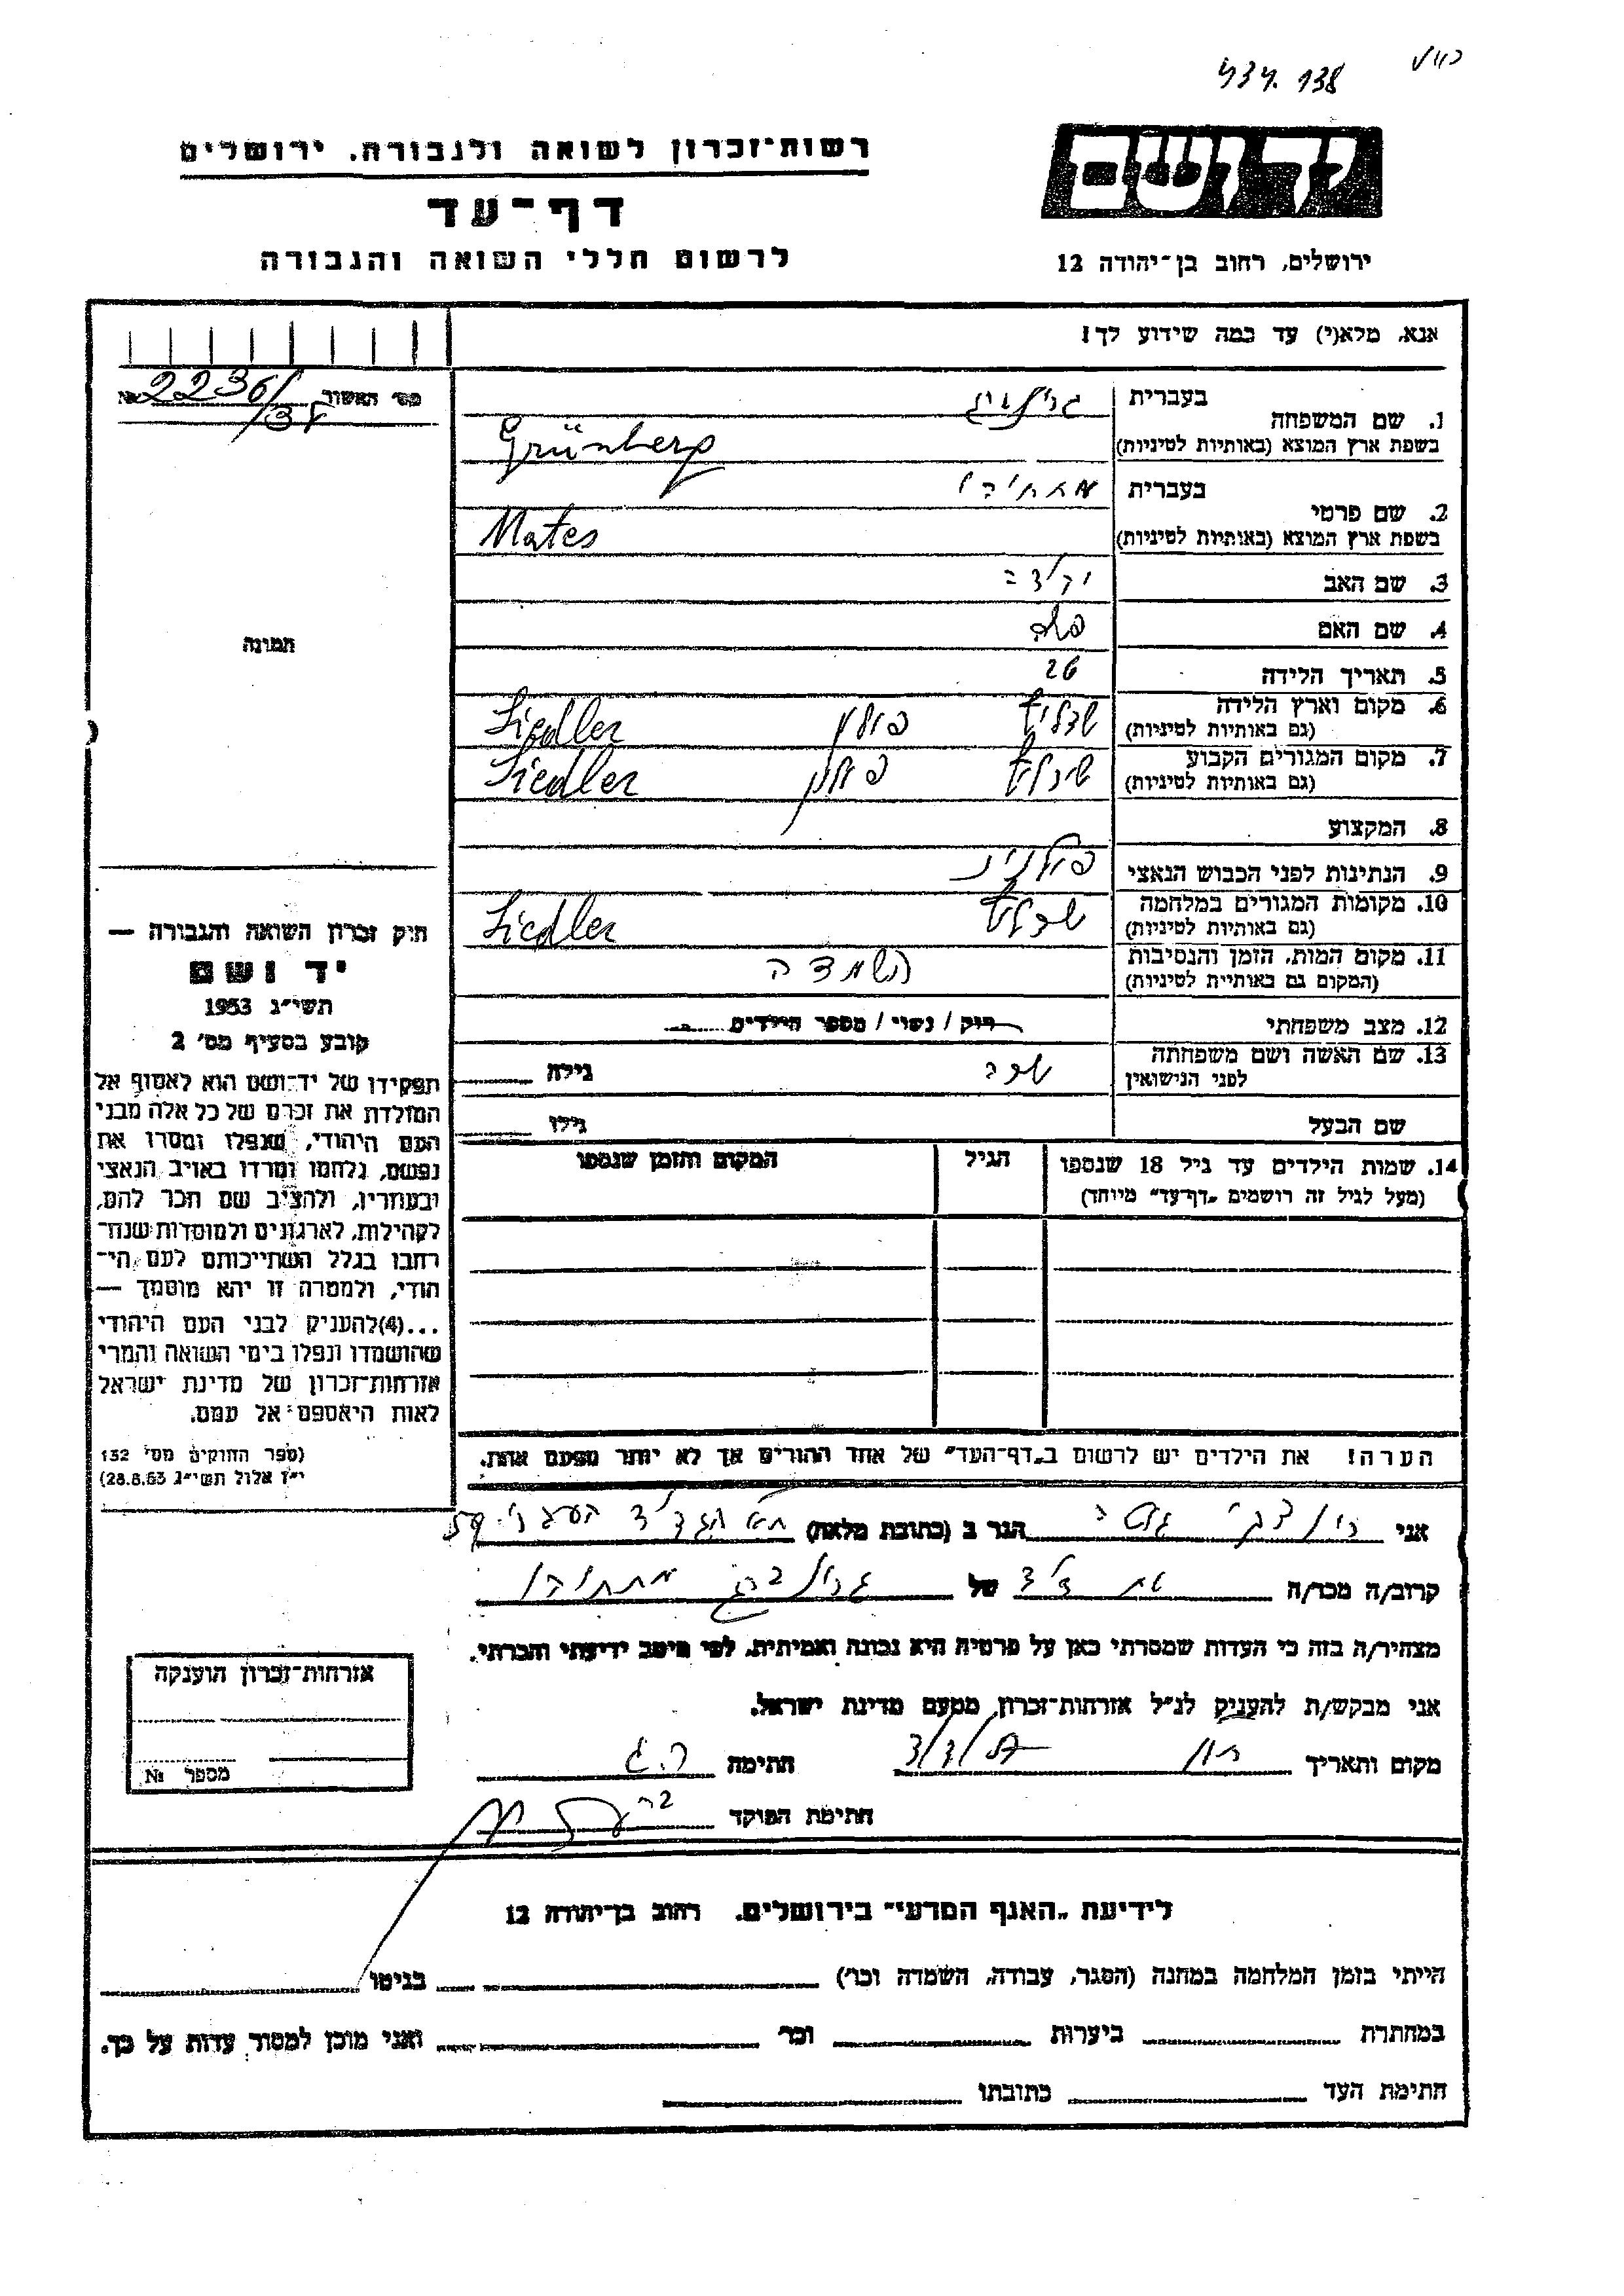 434. 138
רשות־זכרון לשואה ולגבורה. ירושלים
דף־עד
לרשום חללי השואה והגבורה
יד ושם
ירושלים, רחוב בן־יהודה 12
אנא, מלא(י) עד כמה שידוע לך!
מס׳ האשור № 2236/
138
תמונה
1. שם המשפחה בעברית
בשפת ארץ המוצא (באותיות לטיניות) Grünberg
2. שם פרטי בעברית מתתיהו
בשפת ארץ המוצא (באותיות לטיניות) Mates
3. שם האב
4. שם האם
5. תאריך הלידה
6. מקום וארץ הלידה פולין Siedler
(גם באותיות לטיניות)
7. מקום המגורים הקבוע פולין Siedler
(גם באותיות לטיניות)
8. המקצוע
9. הנתינות לפני הכבוש הנאצי פולנית
10. מקומות המגורים במלחמה Siedler
(גם באותיות לטיניות)
11. מקום המות, הזמן והנסיבות השמדה
(המקום גם באותיות לטיניות)
12. מצב משפחתי רוק / נשוי / מספר הילדים
13. שם האשה ושם משפחתה גילה
לפני הנישואין
שם הבעל גילו
14. שמות הילדים עד גיל 18 שנספו הגיל המקום והזמן שנספו
(מעל לגיל זה רושמים „דף־עד" מיוחד)
הערה! את הילדים יש לרשום ב„דף־העד" של אחד ההורים אך לא יותר מפעם אחת.
חוק זכרון השואה והגבורה —
יד ושם
תשי״ג 1953
קובע בסעיף מס׳ 2
תפקידו של יד־ושם הוא לאסוף אל
המולדת את זכרם של כל אלה מבני
העם היהודי, שנפלו ומסרו את
נפשם, נלחמו ומרדו באויב הנאצי
ובעוזריו, ולהציב שם וזכר להם,
לקהילות, לארגונים ולמוסדות שנח־
רבו בגלל השתייכותם לעם הי־
הודי, ולמטרה זו יהא מוסמך —
...(4) להעניק לבני העם היהודי
שהושמדו ונפלו בימי השואה והמרי
אזרחות־זכרון של מדינת ישראל
לאות היאספם אל עמם.
(ספר החוקים מס׳ 132
י״ז אלול תשי״ג 28.8.53)
אני הגר ב (כתובת מלאה)
קרוב/ה מכר/ה של גרינברג מתתיהו
מצהיר/ה בזה כי העדות שמסרתי כאן על פרטיה היא נכונה ואמיתית, לפי מיטב ידיעתי והכרתי.
אני מבקש/ת להעניק לנ״ל אזרחות־זכרון מטעם מדינת ישראל.
מקום ותאריך חתימה
חתימת הפוקד
אזרחות־זכרון הוענקה
מספר №
לידיעת „האגף המדעי" בירושלים. רחוב בן־יהודה 12
הייתי בזמן המלחמה במחנה (הסגר, עבודה, השמדה וכו׳) בגיטו
במחתרת ביערות וכו׳ ואני מוכן למסור עדות על כך.
חתימת העד כתובתו